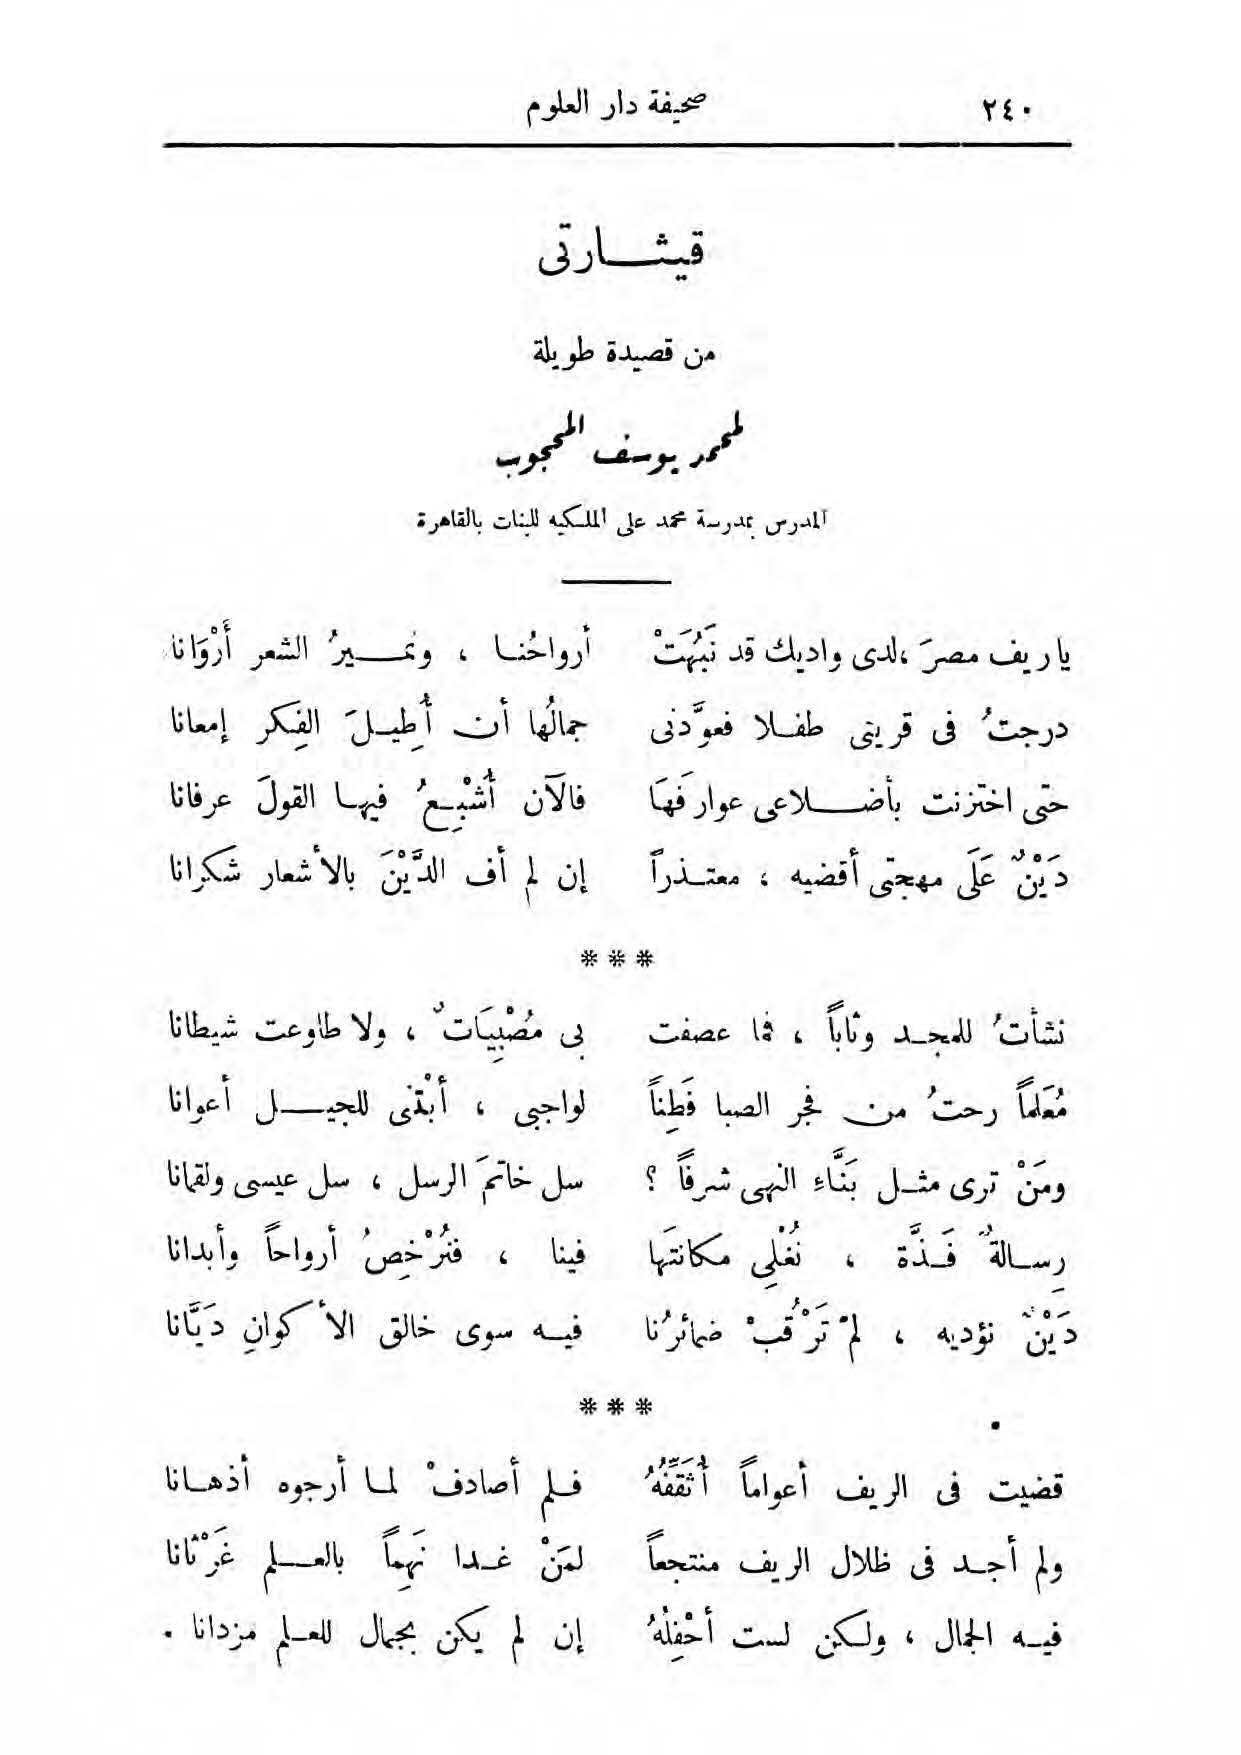 ٢٤٠
صحيفة دار العلوم
قيثارتى
من قصيدة طويلة
لمحمد يوسف المحجوب
المدرس بمدرسة محمد على الملكيه للبنات بالقاهرة
ياريف مصرَ ،لدى واديك قد نَبُهَتْ أرواحُنا ، ونميرُ الشعر أرْوَانا
درجتُ فى قريتى طفلا فعوَّدنى جمالُها أن أُطيلَ الفِكر إمعانا
حتى اختزنت بأضلاعى عوارفَهَا فالآن أُشْبِعُ فيها القولَ عرفانا
دَيْنٌ عَلَى مهجتى أقضيه ، معتذراً إن لم أف الدَّيْنَ بالأشعار شكرانا
* * *
نشأتُ للمجد وثاباً ، فما عصفت بى مُصْبِيَاتٌ ، ولا طاوعت شيطانا
مُعَلماً رحتُ من فجر الصبا فَطِناً لواجبى ، أبْتنى للجيل أعوانا
ومَنْ ترى مثل بَنَّاءِ النهى شرفاً ؟ سل خاتمَ الرسل ، سل عيسى ولقمانا
رِسالةٌ فَذَّة ، نُغْلِى مكانتَها فينا ، فنُرْخِصُ أرواحاً وأبدانا
دَيْنٌ نؤديه ، لمْ تَرْقُبْ ضمائرُنا فيه سوى خالق الأكوانِ دَيَّانا
* * *
قضيت فى الريف أعواماً أُثَقِّفُهُ فلم أصادفْ لما أرجوه أذهانا
ولم أجد فى ظلال الريف منتجعاً لمَنْ غدا نَهِماً بالعلم غَرْثانا
فيه الجمال ، ولكن لست أحْفِلُهُ إن لم يكن بجمال للعلم مزدانا .